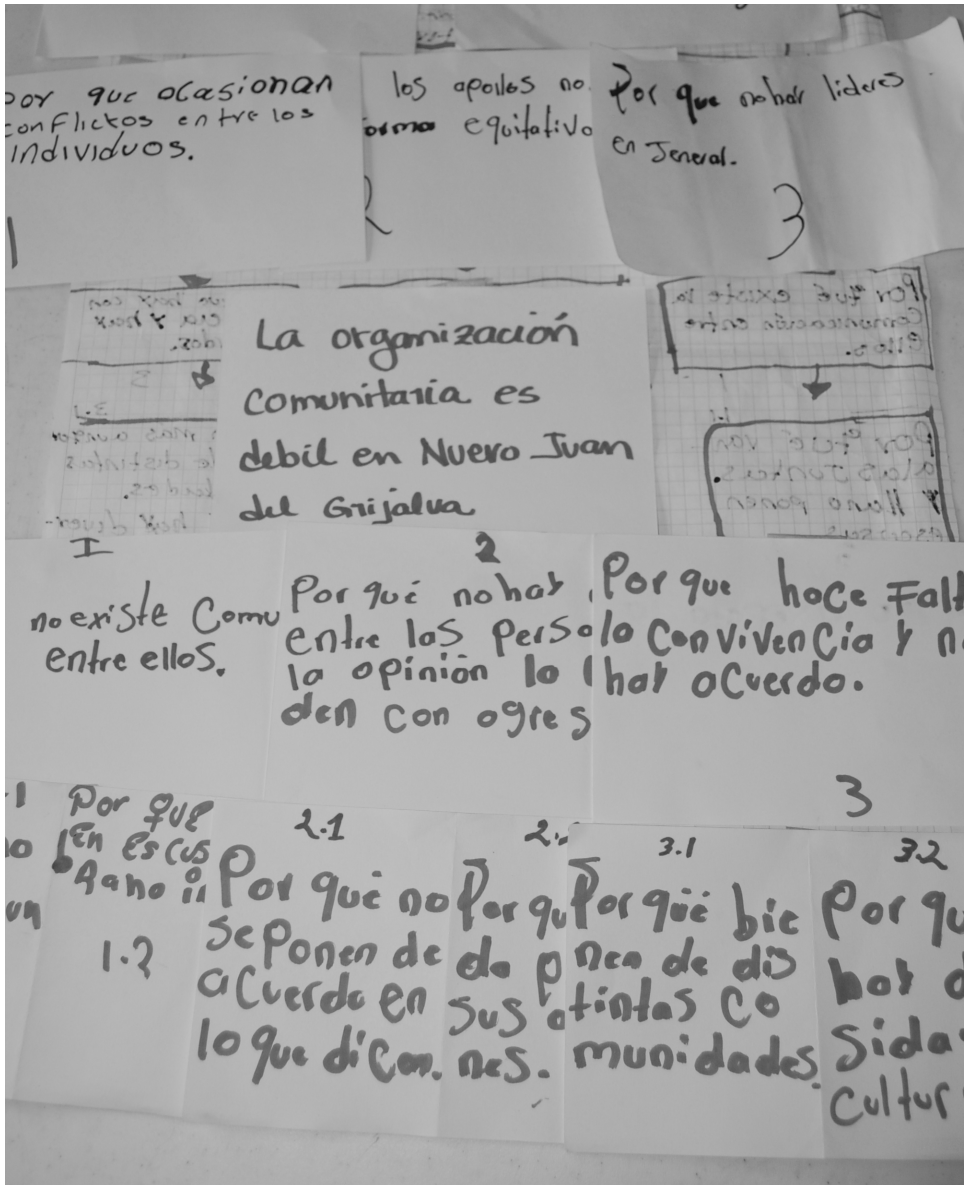 por que ocasionan
conflictos entre los
individuos.
1
los apolles no
forma equitativo
2
Por que nohay lideres
en Jeneral.
3
La organización
Comunitaria es
debil en Nuevo Juan
del Grijalva
Por qué existe la
Comunicación entre
Ellos.
1.1
Por qué van
alas Juntas
Y Llano ponen
3
3.1
de distintas
I
no existe Comu
entre ellos.
2
Por qué nohay
entre las Perso
la opinión lo
den con ogres
Por que hace Falt
la Convivencia Y n
hay acuerdo.
3
Por que
En Escus
1.2
2.1
Por qué no
se Ponen de
acuerdo en
lo que dicen.
Por qu
do p
sus o
nes.
3.1
Por qué bie
nen de dis
tintas co
munidades.
3.2
Por qu
hay d
sida
cultur